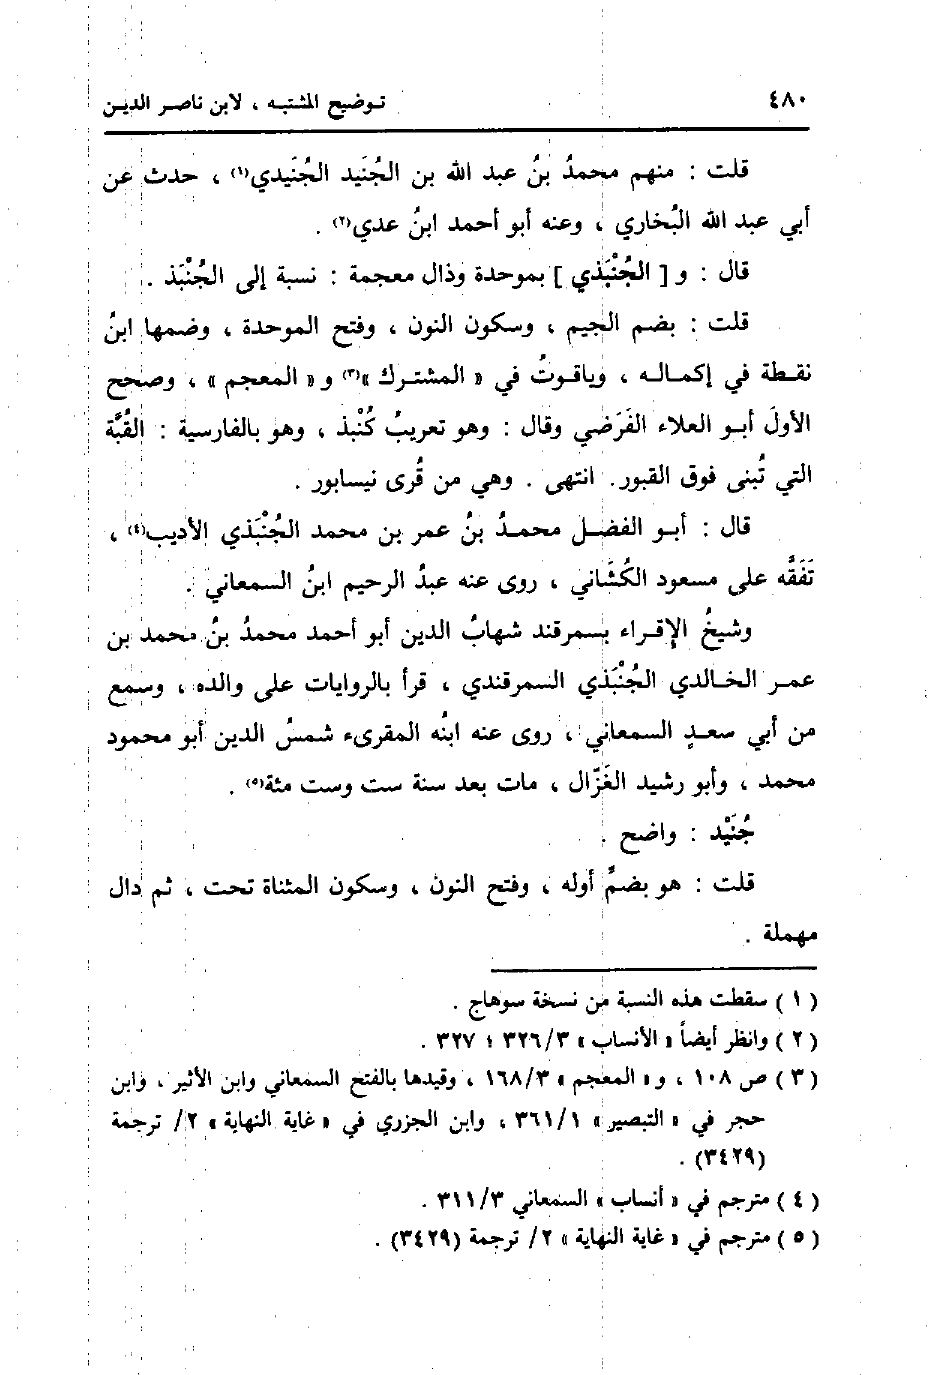 ٤٨٠ توضيح المشتبه ، لابن ناصر الدين
قلت : منهم محمدُ بنُ عبد الله بن الجُنَيد الجُنَيدي(١) ، حدث عن
أبي عبد الله البُخاري ، وعنه أبو أحمد ابنُ عدي(٢) .
قال : و [ الجُنْبَذي ] بموحدة وذال معجمة : نسبة إلى الجُنْبَذ .
قلت : بضم الجيم ، وسكون النون ، وفتح الموحدة ، وضمها ابنُ
نقطة في إكماله ، وياقوتُ في « المشترك »(٣) و « المعجم » ، وصحح
الأولَ أبو العلاء الفَرَضي وقال : وهو تعريبُ كُنْبذ ، وهو بالفارسية : القُبَّة
التي تُبنى فوق القبور. انتهى . وهي من قُرى نيسابور .
قال : أبو الفضل محمدُ بنُ عمر بن محمد الجُنْبَذي الأديب(٤) ،
تَفَقَّه على مسعود الكُشَاني ، روى عنه عبدُ الرحيم ابنُ السمعاني .
وشيخُ الإقراء بسمرقند شهابُ الدين أبو أحمد محمدُ بنُ محمد بن
عمر الخالدي الجُنْبَذي السمرقندي ، قرأ بالروايات على والده ، وسمع
من أبي سعدٍ السمعاني ، روى عنه ابنُه المقرىء شمسُ الدين أبو محمود
محمد ، وأبو رشيد الغَزّال ، مات بعد سنة ست وست مئة(٥) .
جُنَيْد : واضح .
قلت : هو بضمِّ أوله ، وفتح النون ، وسكون المثناة تحت ، ثم دال
مهملة .
( ١ ) سقطت هذه النسبة من نسخة سوهاج .
( ٢ ) وانظر أيضاً « الأنساب » ٣٢٦/٣ ، ٣٢٧ .
( ٣ ) ص ١٠٨ ، و « المعجم » ١٦٨/٣ ، وقيدها بالفتح السمعاني وابن الأثير ، وابن
حجر في « التبصير » ٣٦١/١ ، وابن الجزري في « غاية النهاية » ٢/ ترجمة
(٣٤٢٩) .
( ٤ ) مترجم في « أنساب » السمعاني ٣١١/٣ .
( ٥ ) مترجم في « غاية النهاية » ٢/ ترجمة (٣٤٢٩) .